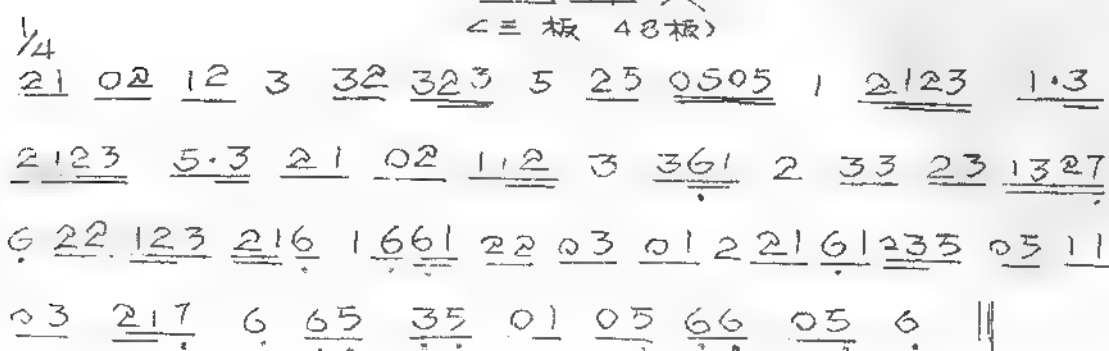 <三板 48板>
1/4
21 02 12 3 32 323 5 25 0505 1 2123 1·3
2123 5·3 21 02 112 3 361 2 33 23 1327
6 22 123 216 1 661 22 03 01 2 21 61 235 05 11
03 217 6 65 35 01 05 66 05 6 ‖